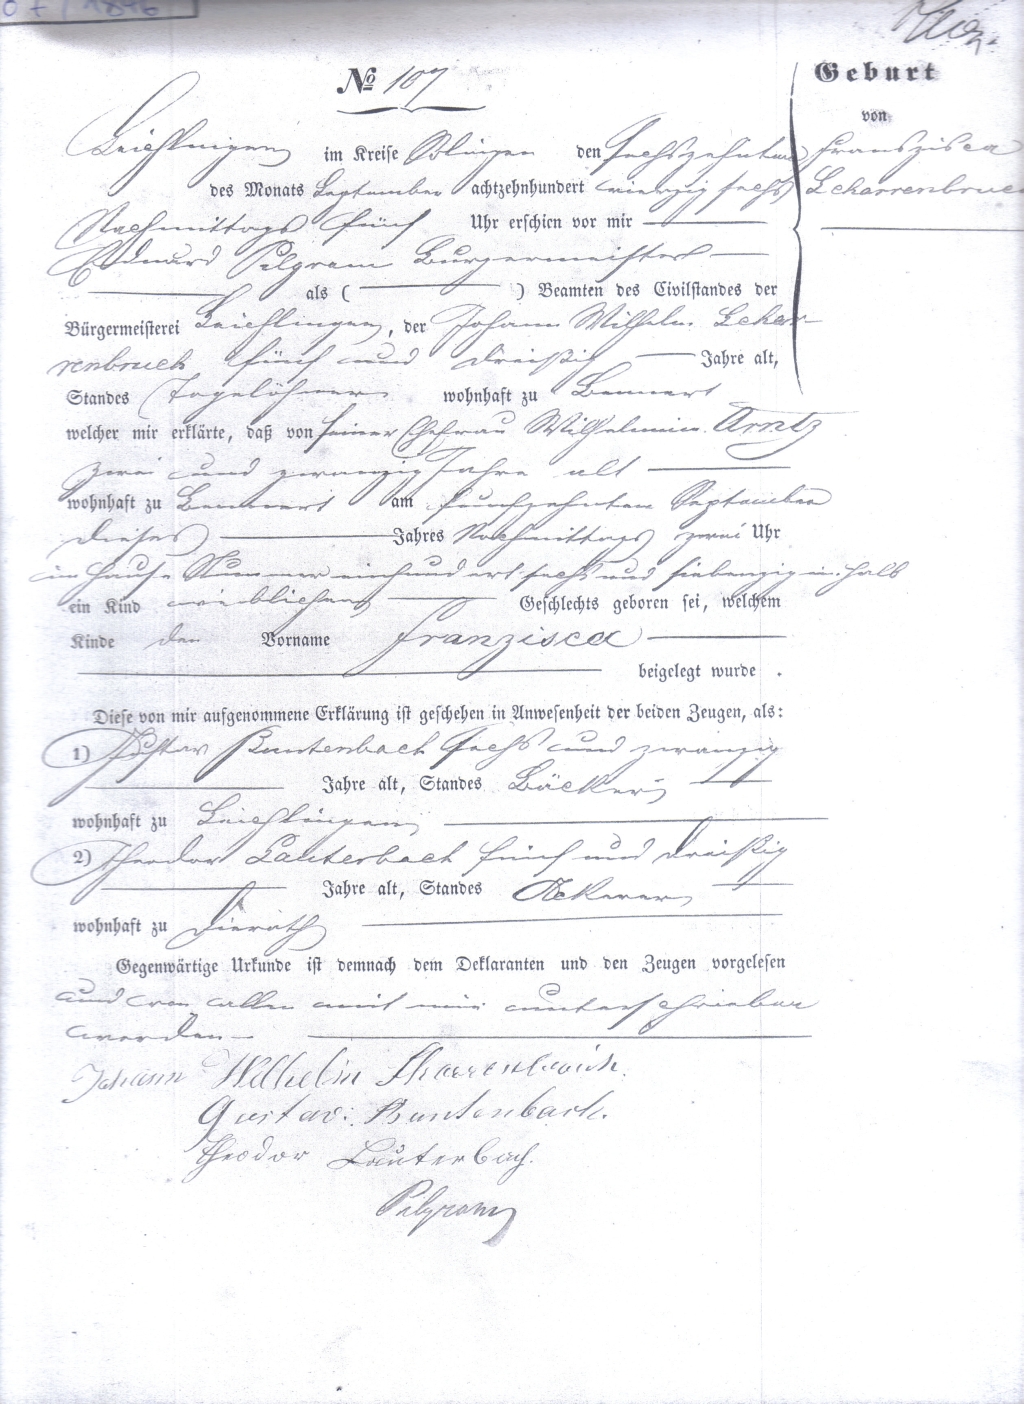 № 107
Geburt
von
Franszisca
Leichlingen im Kreise Solingen den sechszehnten
des Monats September achtzehnhundert vierzig sechs
Nachmittags fünf Uhr erschien vor mir
Eduard Pilgram Bürgermeister
als ( ) Beamten des Civilstandes der
Bürgermeisterei Leichlingen, der Johann Wilhelm
fünf und dreißig Jahre alt,
Standes Tagelöhner wohnhaft zu Bennert
welcher mir erklärte, daß von seiner Ehefrau Wilhelmin. Arntz
zwei und zwanzig Jahre alt
wohnhaft zu Bennert am fünfzehnten September
dieses Jahres Nachmittags zwei Uhr
im Hause Nummer einhundert sechs und siebenzig
ein Kind weiblichen Geschlechts geboren sei, welchem
Kinde den Vorname Franzisca
beigelegt wurde .
Diese von mir aufgenommene Erklärung ist geschehen in Anwesenheit der beiden Zeugen, als:
1) Gustav Buntenbach sechs und zwanzig
Jahre alt, Standes Bäcker
wohnhaft zu Leichlingen
2) Theodor Lauterbach fünf und dreißig
Jahre alt, Standes Ackerer
wohnhaft zu Dierath
Gegenwärtige Urkunde ist demnach dem Deklaranten und den Zeugen vorgelesen
und von allen mit mir unterschrieben
worden
Johann Wilhelm
Gustav: Buntenbach.
Theodor Lauterbach.
Pilgram